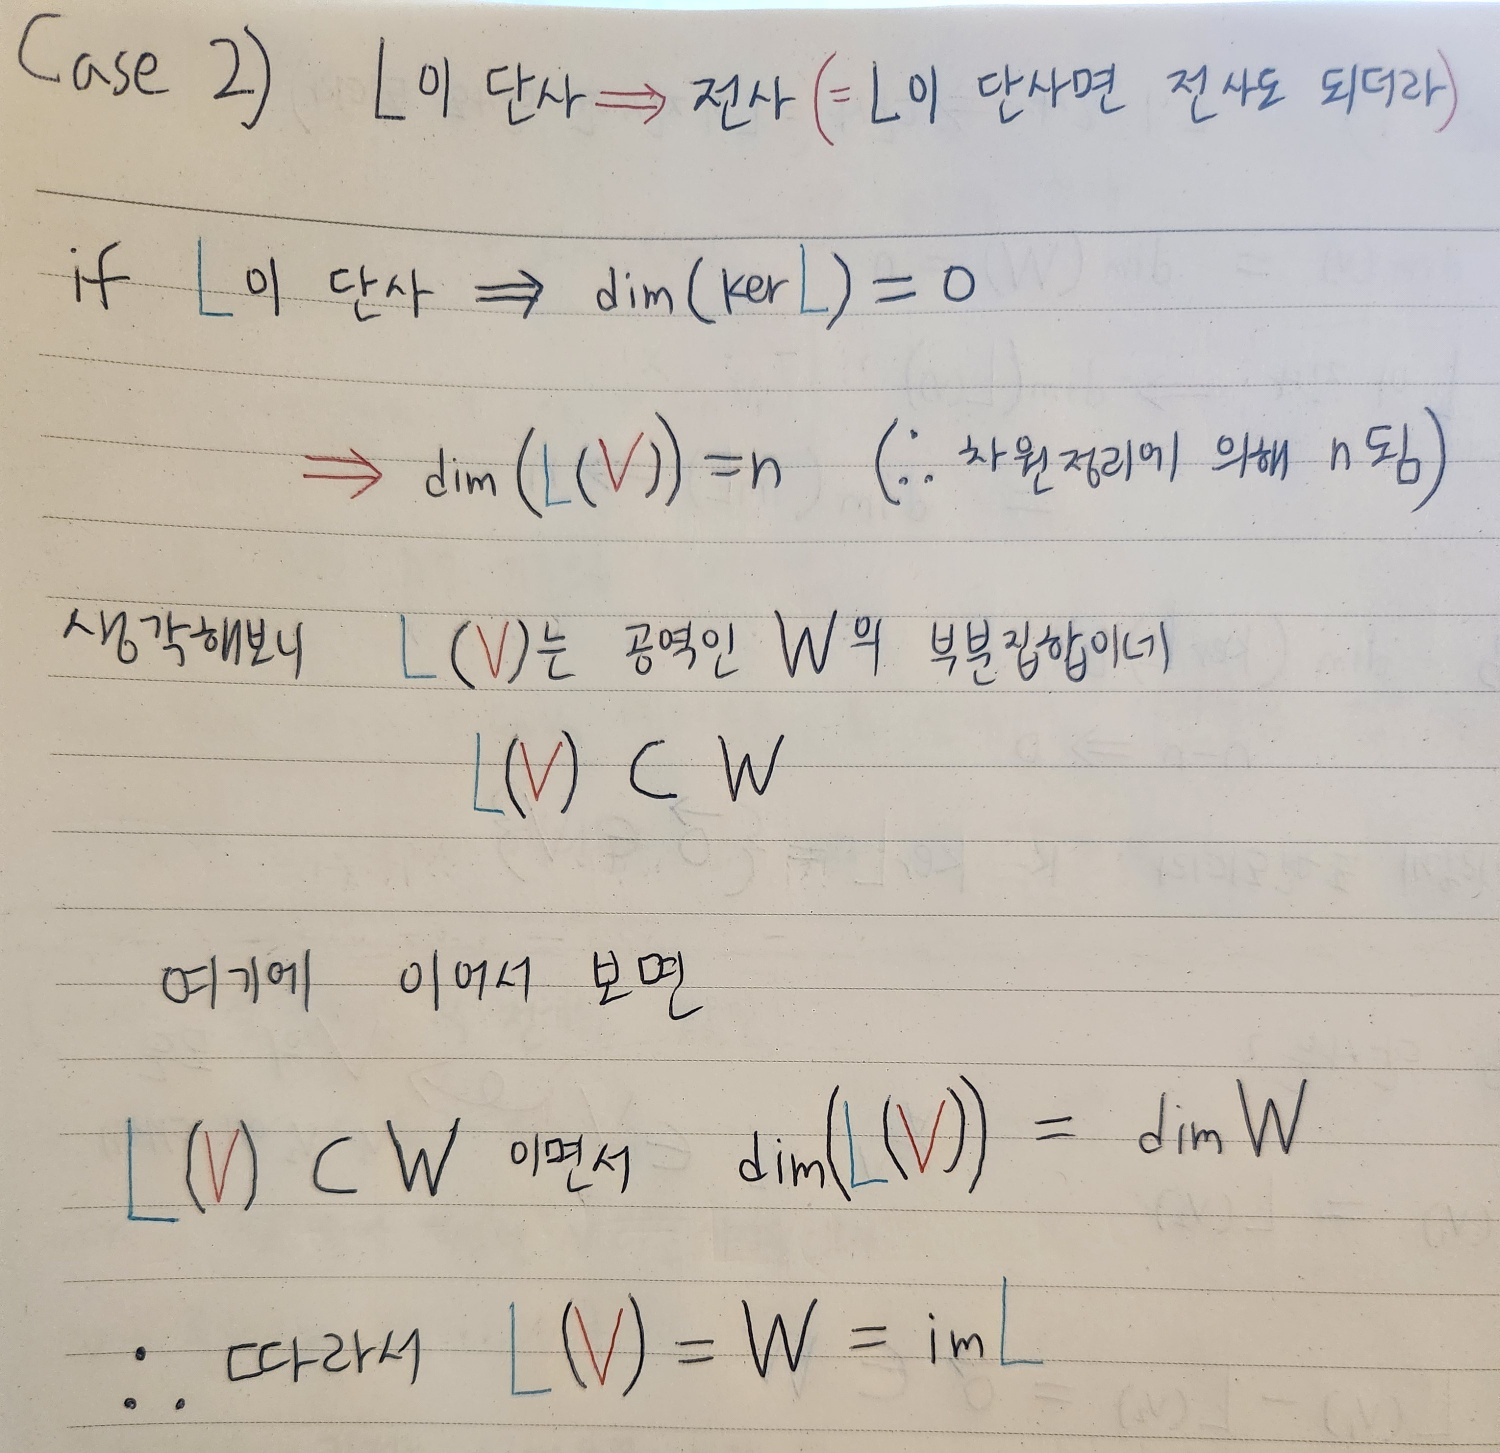 Case 2) L이 단사 ⇒ 전사 (= L이 단사면 전사도 되더라)
if L이 단사 ⇒ dim(ker L) = 0
⇒ dim(L(V)) = n (∴ 차원정리에 의해 n 됨)
생각해보니 L(V)는 공역인 W의 부분집합이네
L(V) ⊂ W
여기에 이어서 보면
L(V) ⊂ W 이면서 dim(L(V)) = dim W
∴ 따라서 L(V) = W = im L